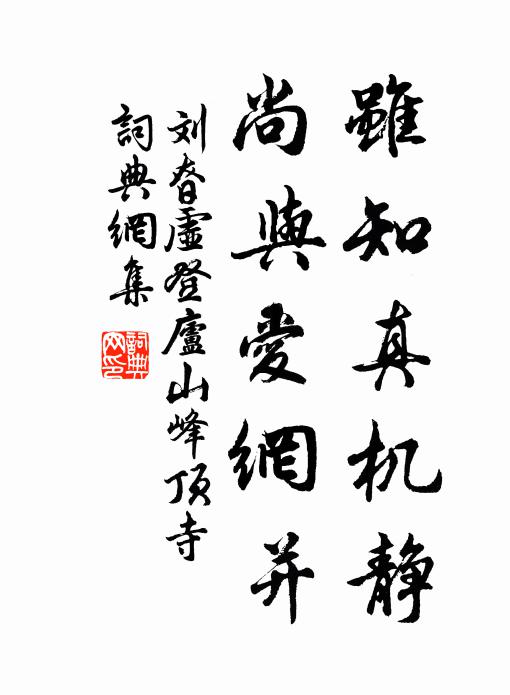 雖知真机静
尚與愛網并
刘眘虛登廬山峰顶寺
詞典網集
詞典网印